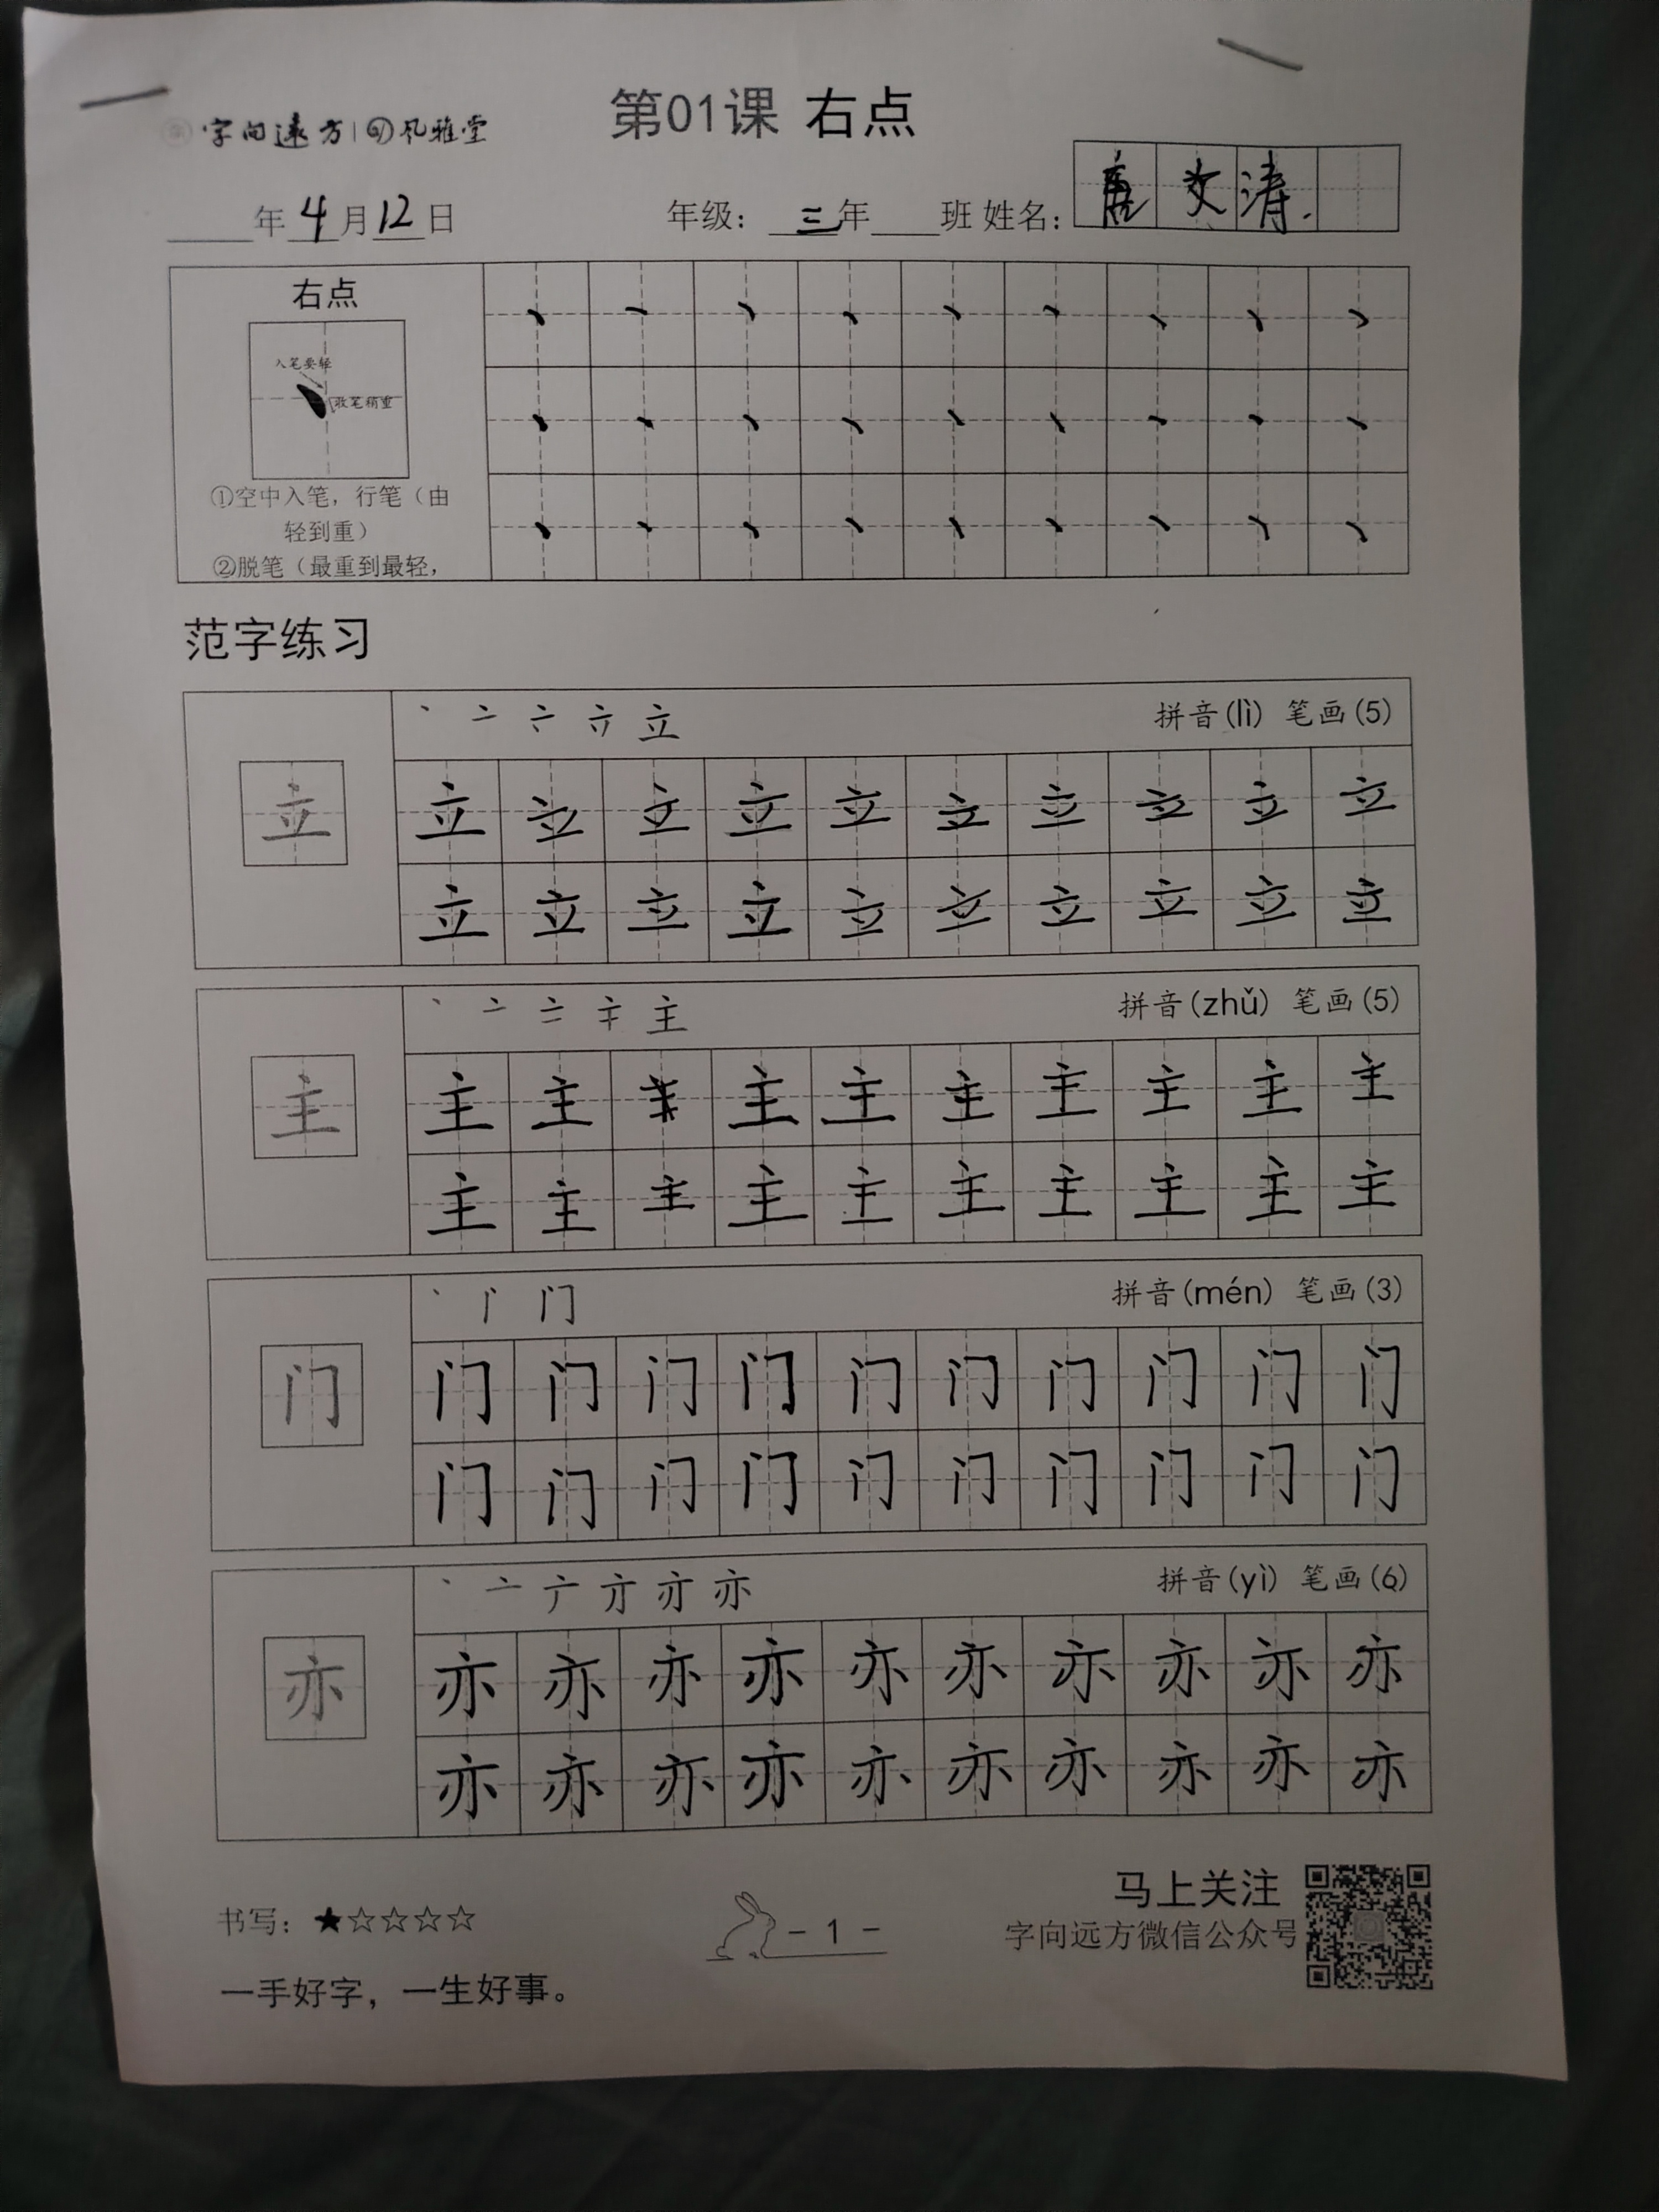 字向遠方 | 风雅堂
第01课 右点
年4月12日 年级：三年 班 姓名：唐文涛
右点
入笔要轻
收笔稍重
①空中入笔，行笔（由
轻到重）
②脱笔（最重到最轻，
范字练习
拼音(lì) 笔画(5)
立 立 立 立 立 立 立 立 立 立 立
立 立 立 立 立 立 立 立 立 立
拼音(zhǔ) 笔画(5)
主 主 主 主 主 主 主 主 主 主 主
主 主 主 主 主 主 主 主 主 主
拼音(mén) 笔画(3)
门 门 门 门 门 门 门 门 门 门 门
门 门 门 门 门 门 门 门 门 门
拼音(yì) 笔画(6)
亦 亦 亦 亦 亦 亦 亦 亦 亦 亦 亦
亦 亦 亦 亦 亦 亦 亦 亦 亦 亦
书写：★☆☆☆☆
- 1 -
马上关注
字向远方微信公众号
一手好字，一生好事。